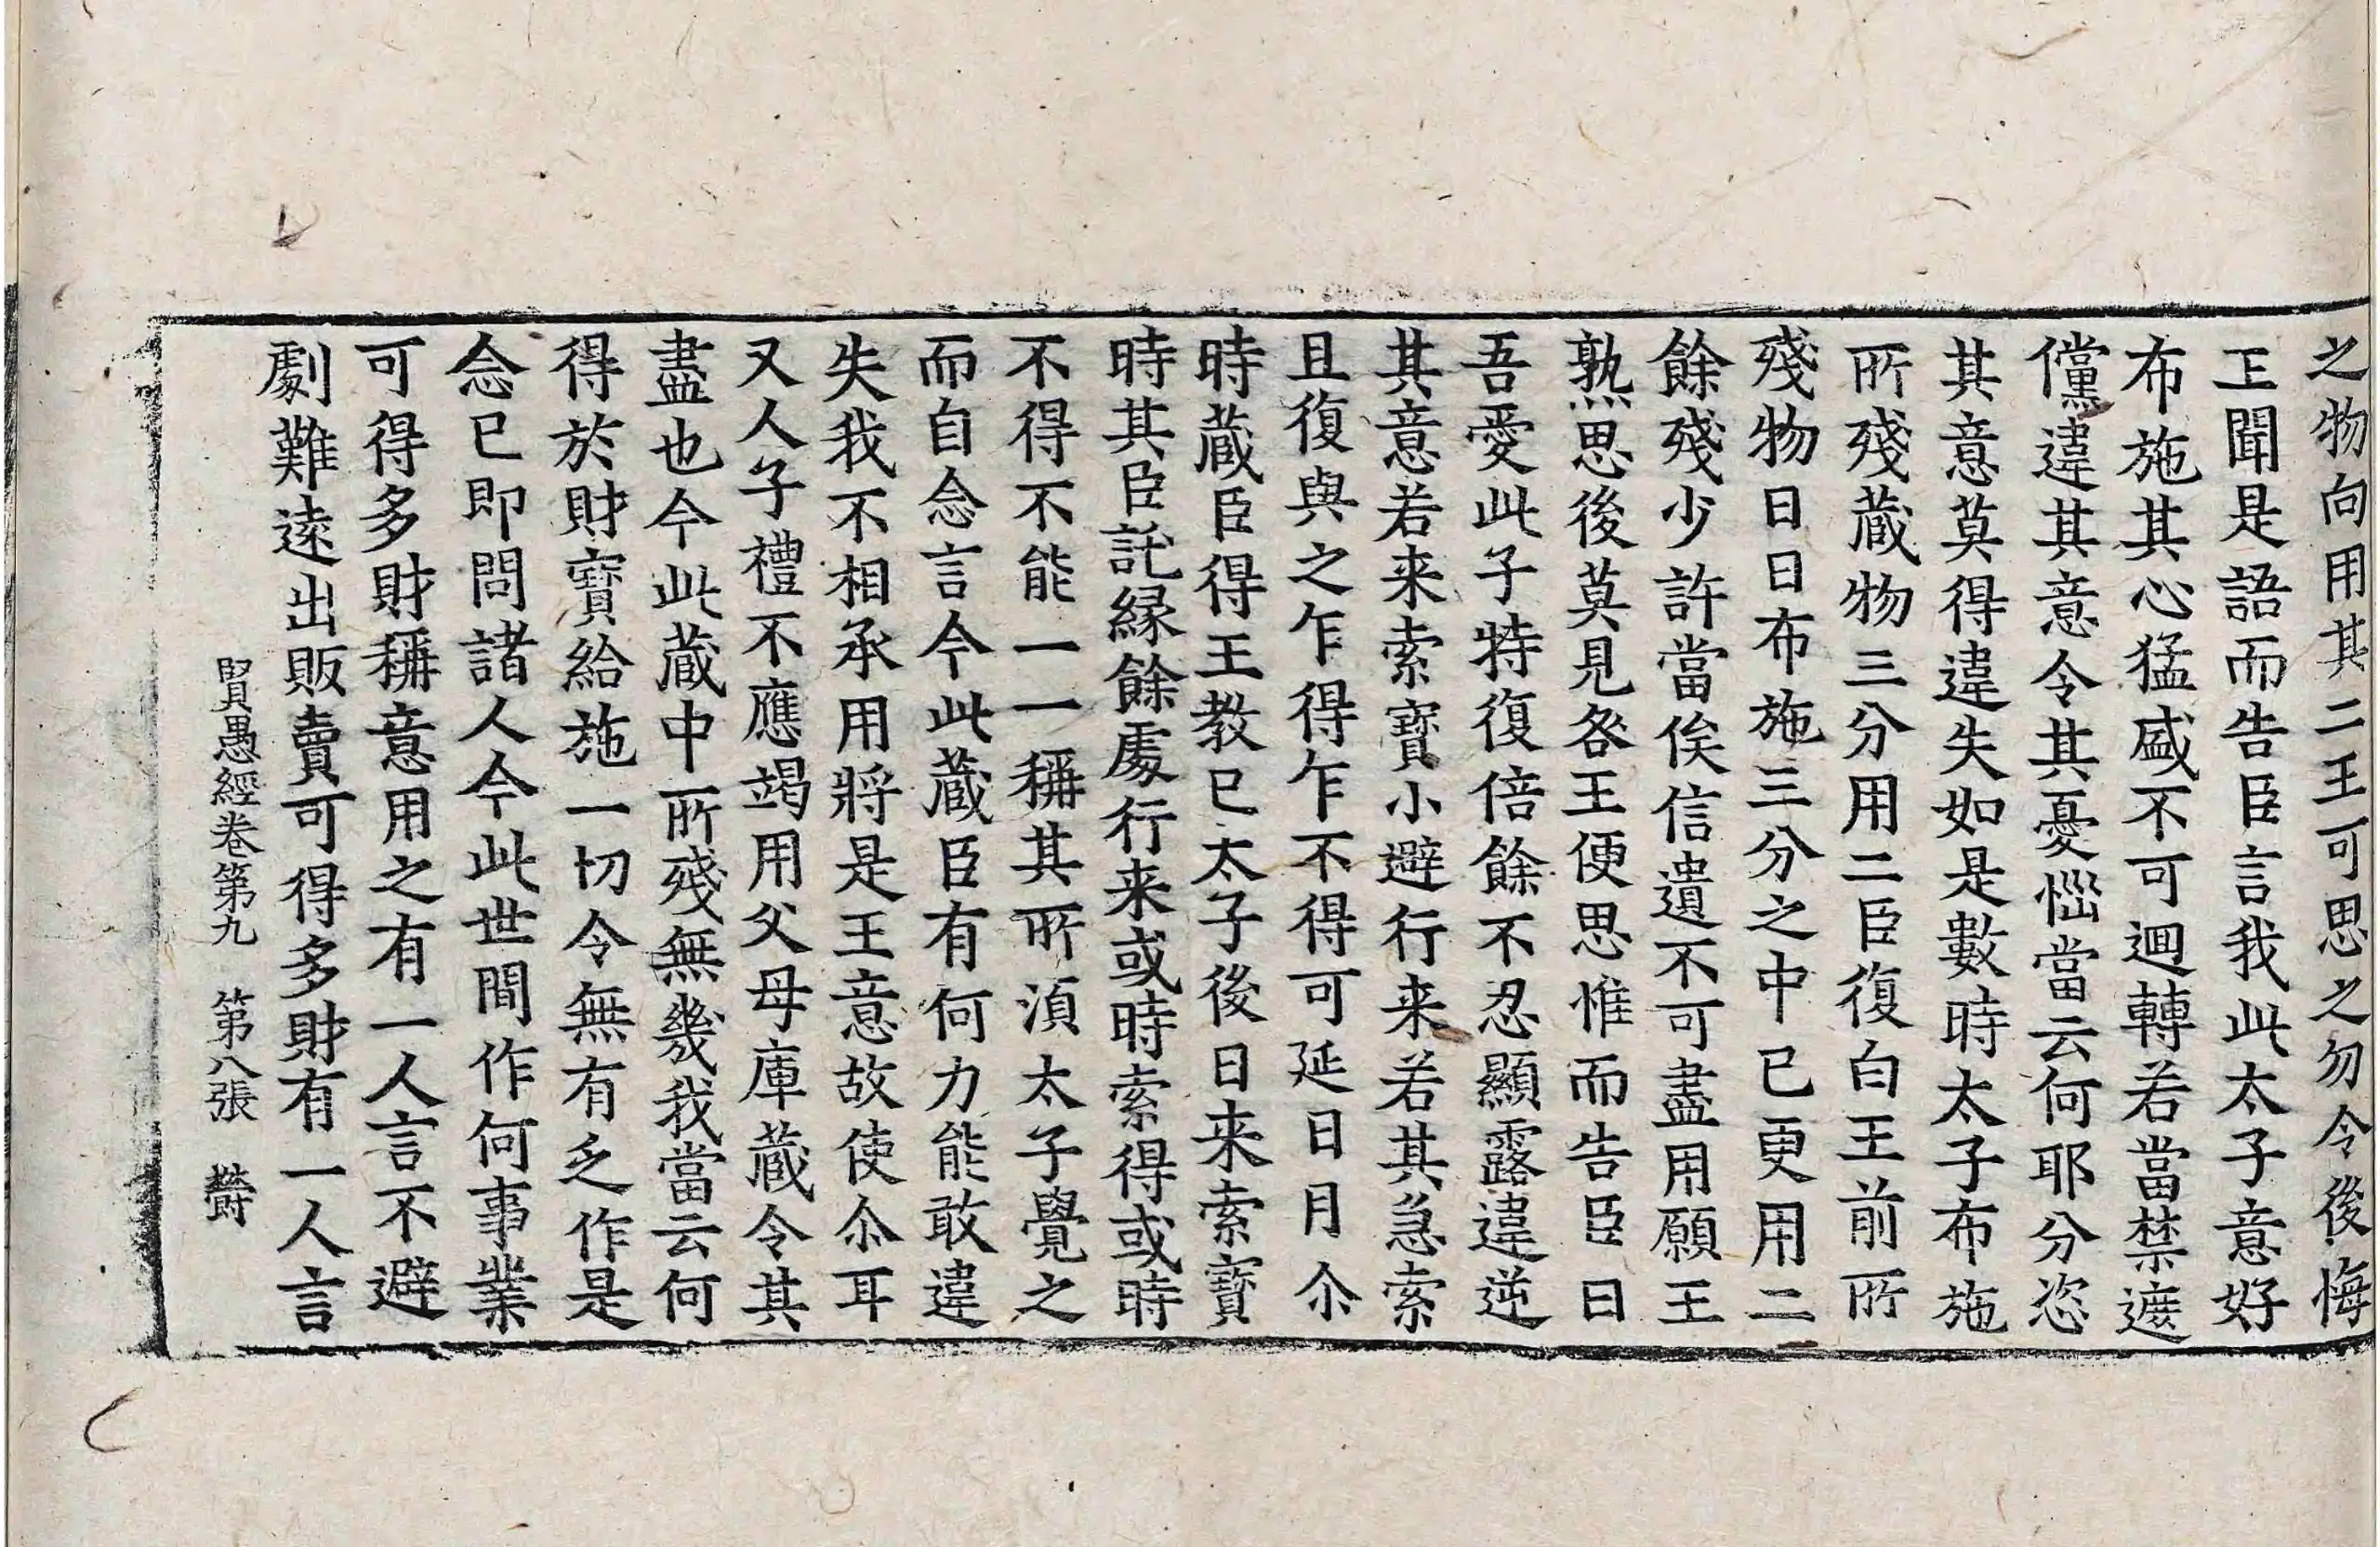 之物向用其二王可思之勿令後悔
王聞是語而告臣言我此太子意好
布施其心猛盛不可迴轉若當禁遮
儻違其意令其憂惱當云何耶分恣
其意莫得違失如是數時太子布施
所殘藏物三分用二臣復白王前所
殘物日日布施三分之中已更用二
餘殘少許當俟信遺不可盡用願王
熟思後莫見咎王便思惟而告臣曰
吾愛此子特復倍餘不忍顯露違逆
其意若来索寶小避行来若其急索
且復與之乍得乍不得可延日月尒
時蔵臣得王教已太子後日来索寶
時其臣託縁餘處行来或時索得或時
不得不能一一稱其所湏太子覺之
而自念言今此蔵臣有何力能敢違
失我不相承用將是王意故使尒耳
又人子禮不應竭用父母庫蔵令其
盡也今此蔵中所殘無幾我當云何
得於財寶給施一切令無有乏作是
念已即問諸人今此世間作何事業
可得多財稱意用之有一人言不避
劇難遠出販賣可得多財有一人言
賢愚經卷第九　第八張　欝